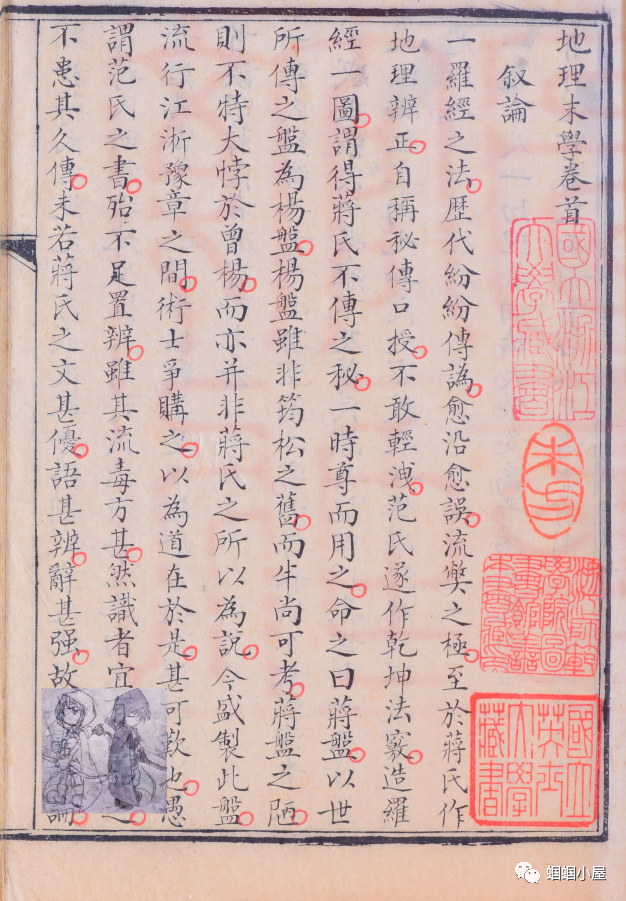 地理末學卷首
叙論
一羅經之法歴代紛紛傳譌愈沿愈誤流獘之極至於蔣氏作
地理辨正自稱秘傳口授不敢輕洩范氏遂作乾坤法竅造羅
經一圖謂得蔣氏不傳之秘一時尊而用之命之曰蔣盤以世
所傳之盤為楊盤楊盤雖非筠松之舊而半尚可考蔣盤之陋
則不特大悖於曾楊而亦并非蔣氏之所以為說今盛製此盤
流行江浙豫章之間術士爭購之以為道在於是甚可歎也愚
謂范氏之書殆不足置辨雖其流毒方甚然識者宜
不患其久傳未若蔣氏之文甚優語甚辨辭甚强故
國立浙江
大學藏書
國立
英士
大學
藏書
蝈蝈小屋